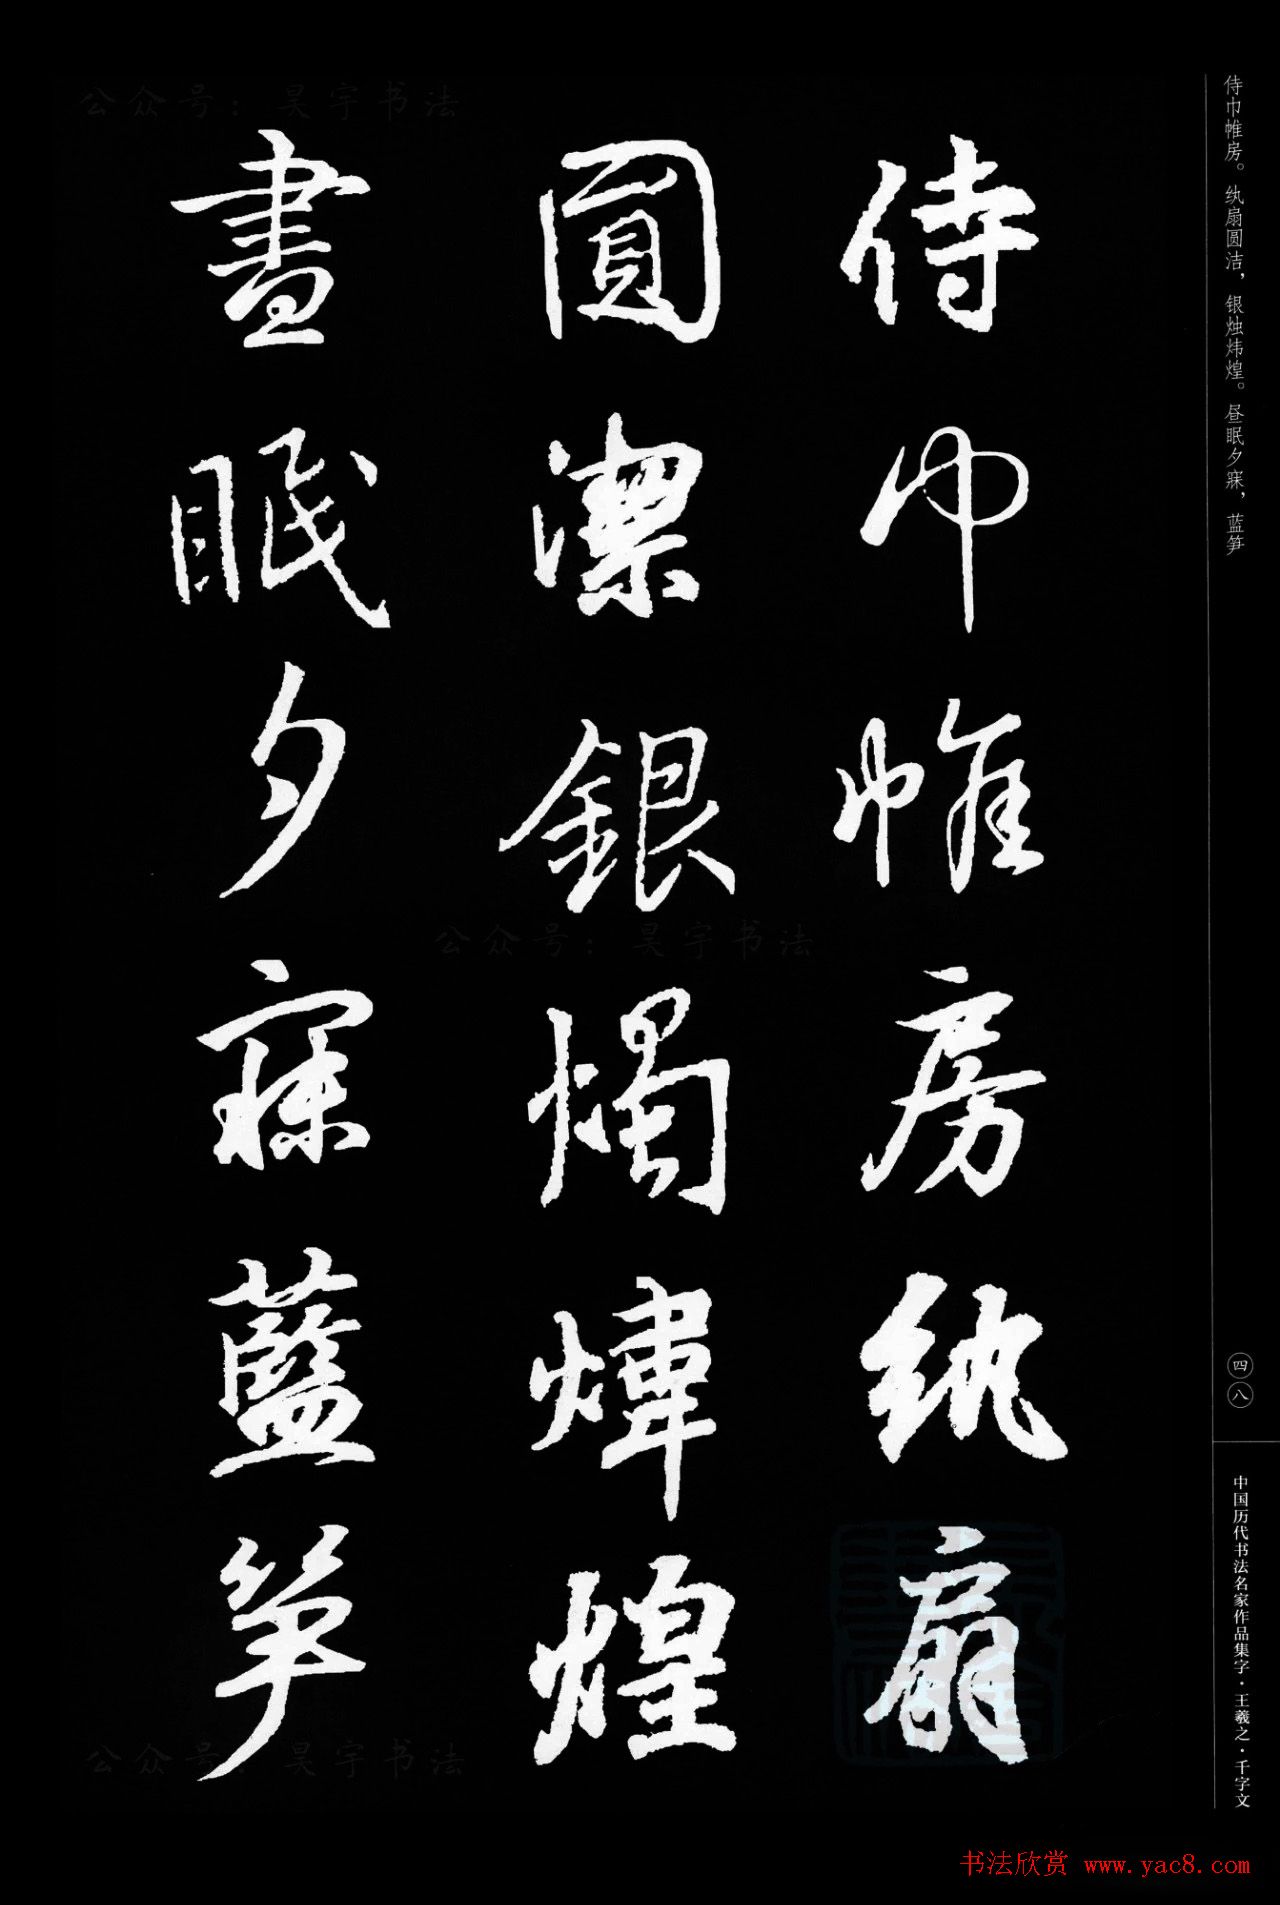 侍巾帷房纨扇
圓潔銀燭煒煌
晝眠夕寐藍筍
侍巾帷房。纨扇圆洁，银烛炜煌。昼眠夕寐，蓝笋
四八
中国历代书法名家作品集字·王羲之·千字文
公众号：昊宇书法
公众号：昊宇书法
公众号：昊宇书法
书法欣赏 www.yac8.com